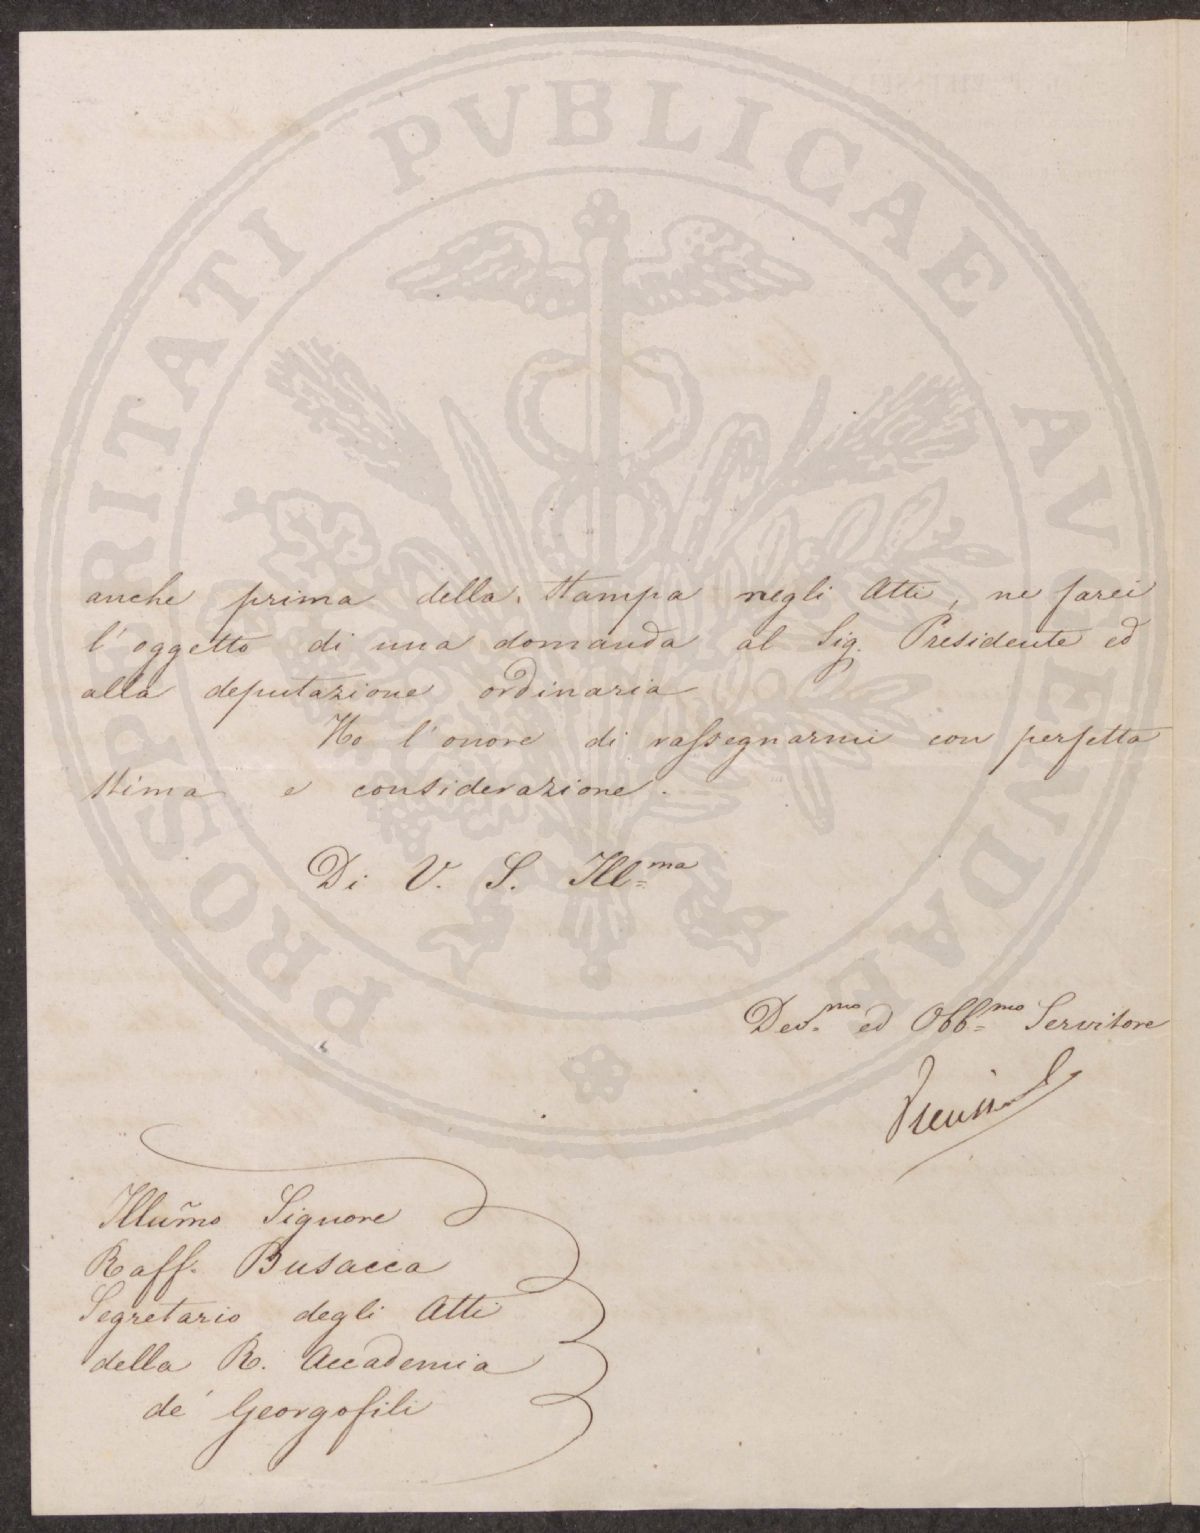 PROSPERITATI PUBLICAE AUGENDAE
anche prima della stampa negli Atti, ne farei
l'oggetto di una domanda al Sig. Presidente ed
alla deputazione ordinaria
Ho l'onore di rassegnarmi con perfetta
stima e considerazione.
Di V. S. Ill=ma
Dev.mo ed Obb=mo Servitore
Illum̃o Signore
Raff. Busacca
Segretario degli Atti
della R. Accademia
de' Georgofili